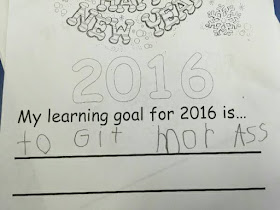 HAPPY
NEW YEAR
2016
My learning goal for 2016 is...
to Git mor Ass